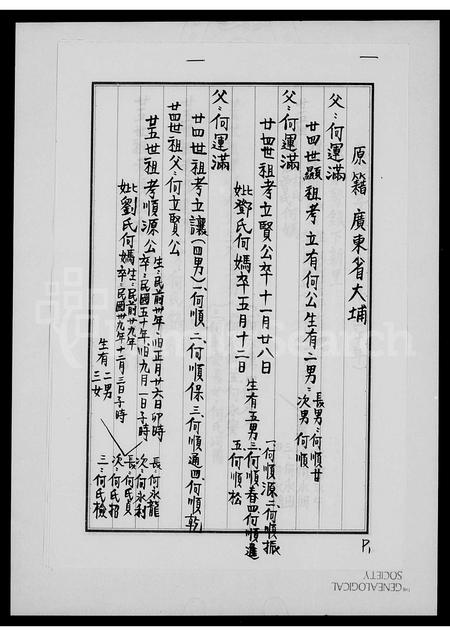 原籍 廣東省大埔
父：何運滿
廿四世顯祖考 立有何公生有二男：
長男：何順廿
次男 何順
父：何運滿
廿四世祖考立賢公卒十一月廿八日
妣鄧氏何媽卒五月十二日
生有五男
一何順源 二何順振
三何順春 四何順暹
五何順松
父：何運滿
廿四世祖考立讓（四男）一、何順 二、何順保 三、何順通 四、何順乾
廿四世祖父：何立賢公
廿五世祖考順源公
生：民前卅年旧正月廿六日卯時
卒：民國五十年旧九月一日子時
妣劉氏何媽
生：民前廿九年
卒：民國廿九年十二月三日子時
生有二男
三女
長：何永龍
次：何永利
長：何氏貝
次：何氏招
三：何氏檢
P1
THE GENEALOGICAL
SOCIETY
FamilySearch